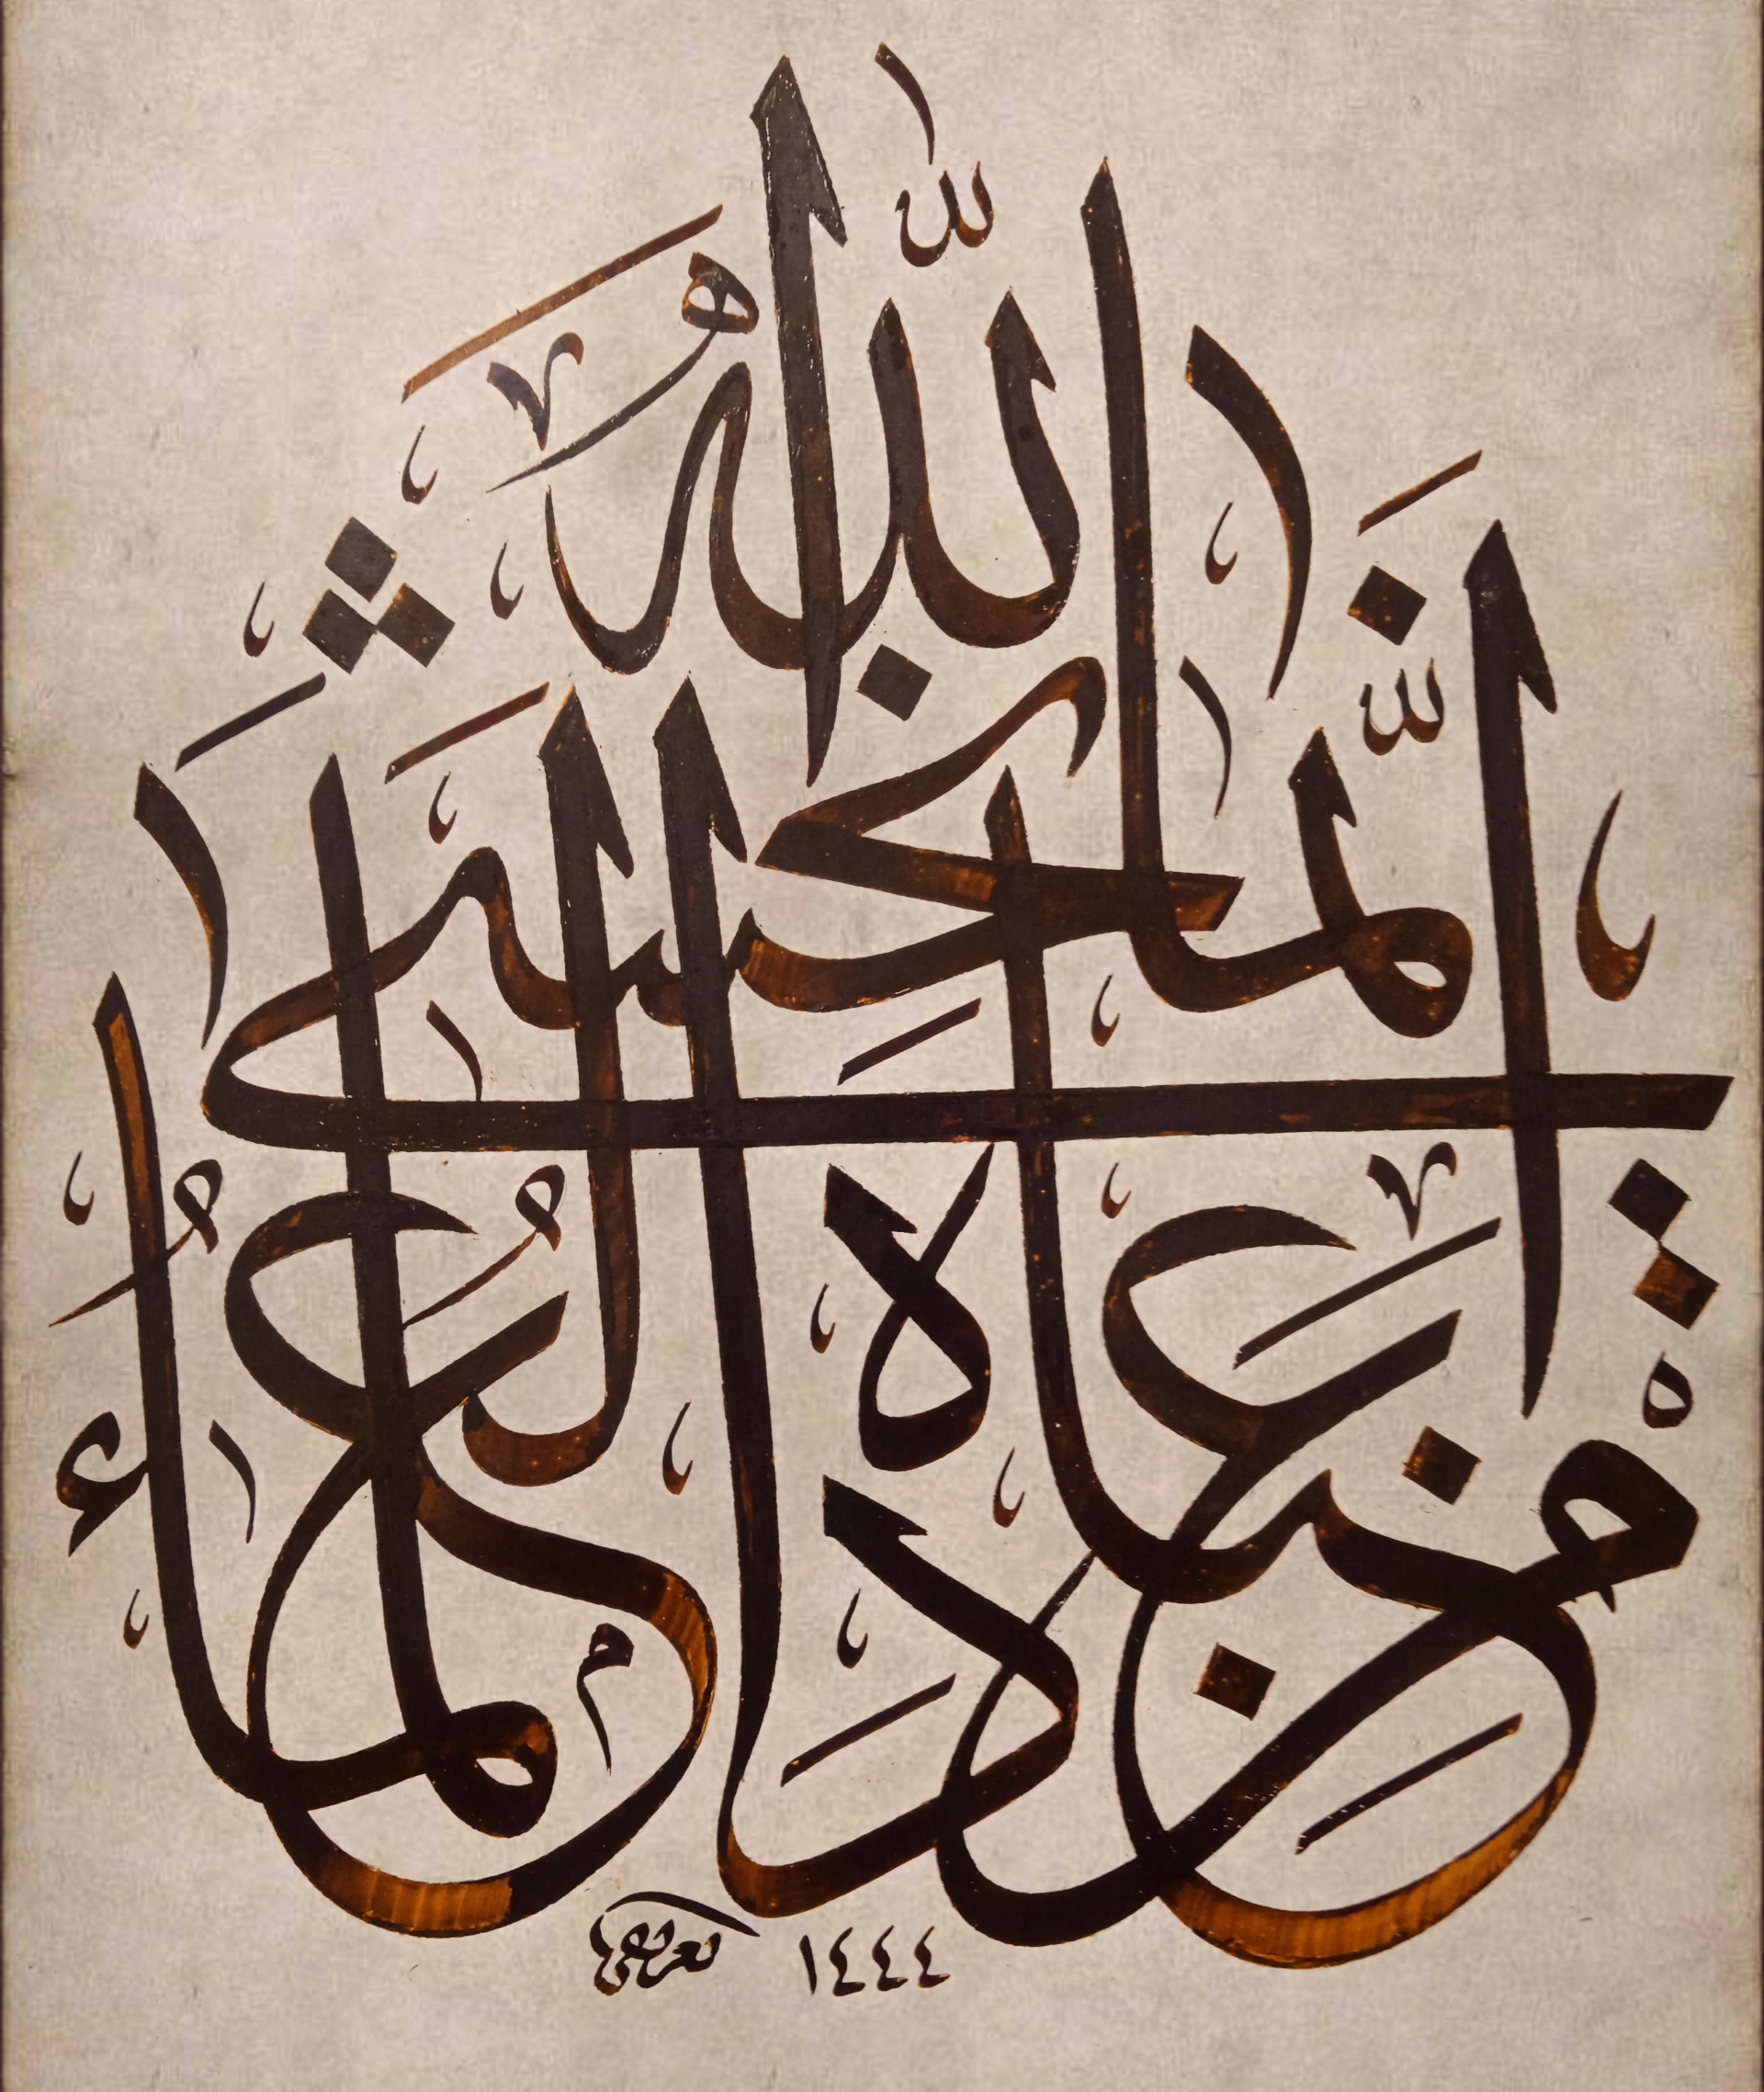 إِنَّمَا يَخْشَى اللّٰهَ مِنْ عِبَادِهِ الْعُلَمَاءُ
١٤٤٤